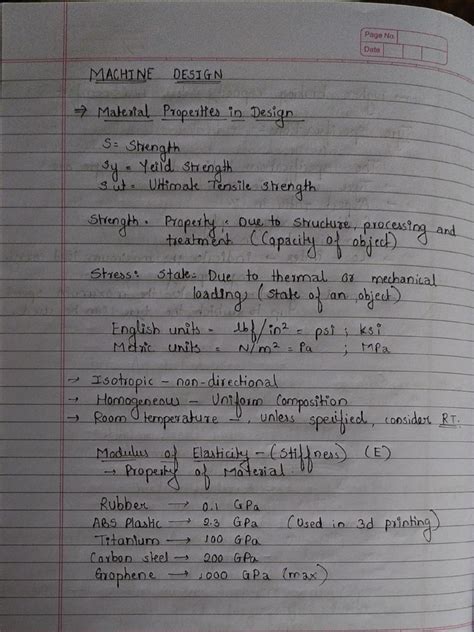 Page No.
Date
MACHINE DESIGN
⇒ Material Properties in Design
S = Strength
Sy = Yeild Strength
Sut = Ultimate Tensile Strength
Strength = Property : Due to structure, processing and
treatment (Capacity of object)
Stress : State : Due to thermal or mechanical
loading, (State of an object)
English units = lbf/in² = psi ; ksi
Metric units = N/m² = Pa ; MPa
→ Isotropic - non-directional
→ Homogeneous - Uniform Composition
→ Room temperature →, unless specified, consider RT.
Modulus of Elasticity - (Stiffness) (E)
→ Property of Material.
Rubber → 0.1 GPa
ABS Plastic → 2.3 GPa (Used in 3d printing)
Titanium → 100 GPa
Carbon steel → 200 GPa
Graphene → 1000 GPa (max)